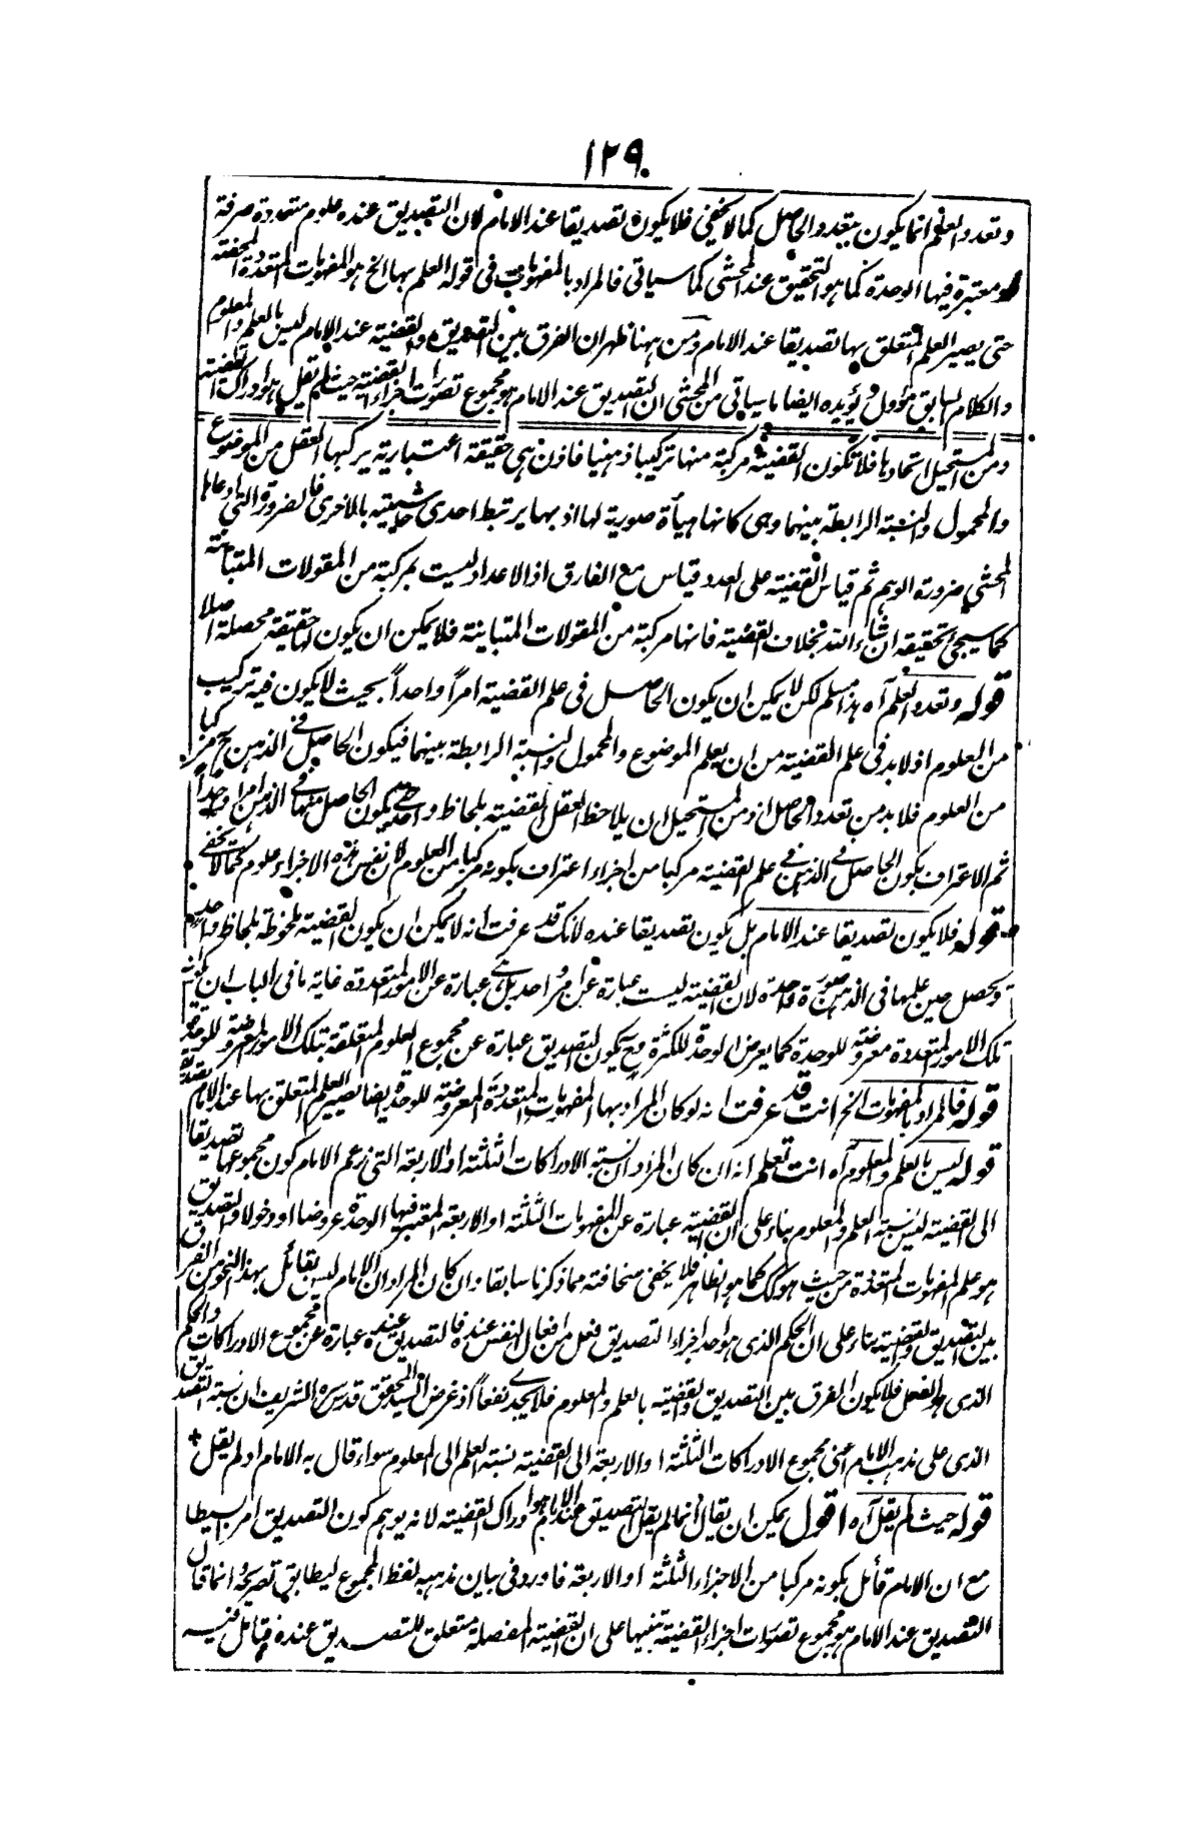 ١٢٩
وتعدد العلم انما يكون بتعدد الحاصل كما لا يخفى فلا يكون تصديقا عند الامام لان التصديق عنده علوم متعددة صرفة
او معتبرة فيها الوحدة كما هو التحقيق عند المحشى كما سياتى فالمراد بالمفهومات فى قوله العلم بها الخ هو المفهومات المتعددة المحضة
حتى يصير العلم المتعلق بها تصديقا عند الامام ومن ههنا ظهر ان الفرق بين التصديق والقضية عند الامام ليس بالعلم والمعلوم
والكلام السابق مؤول ويؤيده ايضا ما سياتى من المحشى ان التصديق عند الامام هو مجموع تصورات اجزاء القضية حيث لم يقل هو ادراك القضية
ومن المستحيل اتحادها فلا تكون القضية مركبة منها تركيبا ذهنيا فاذن هى حقيقة اعتبارية يركبها العقل من الموضوع
والمحمول والنسبة الرابطة بينهما وهى كانها هيأة صورية لها اذ بها يرتبط احدى حاشيتيه بالاخرى فالضرورة التى ادعاها
المحشى ضرورة الوهم ثم قياس القضية على العدد قياس مع الفارق اذ الاعداد ليست بمركبة من المقولات المتباينة
كما سيجئ تحقيقه ان شاء الله بخلاف القضية فانها مركبة من المقولات المتباينة فلا يمكن ان يكون لها حقيقة محصلة اصلا
قوله وتعدد العلم آه هذا مسلم لكن لا يمكن ان يكون الحاصل فى علم القضية امراً واحداً بحيث لا يكون فيه تركيب
من العلوم اذ لا بد فى علم القضية من ان يعلم الموضوع والمحمول والنسبة الرابطة بينهما فيكون الحاصل فى الذهن ح مركبا
من العلوم فلا بد من تعدد الحاصل اذ ومن المستحيل ان يلاحظ العقل القضية بلحاظ واحد حتى يكون الحاصل منها فى الذهن امرا واحداً
ثم الاعتراف بكون الحاصل فى الذهن فى علم القضية مركبا من اجزاء اعتراف بكونه مركبا من العلوم لان نفس هذه الاجزاء علوم كما لا يخفى
قوله فلا يكون تصديقا عند الامام بل يكون تصديقا عنده لانك قد عرفت انه لا يمكن ان يكون القضية ملحوظة بلحاظ واحد
ويحصل من علمها فى الذهن صورة واحدة لان القضية ليست عبارة عن امر واحد بل هى عبارة عن الامور المتعددة غاية ما فى الباب ان يكون
تلك الامور المتعددة معروضة للوحدة كما يعرض الوحدة للكثرة وح يكون التصديق عبارة عن مجموع العلوم المتعلقة بتلك الامور المعروضة للوحدة
قوله فالمراد بالمفهومات الخ انت قد عرفت انه لو كان المراد بها المفهومات المتعددة المعروضة للوحدة ايضا يصير العلم المتعلق بها عند الامام تصديقا
قوله ليس بالعلم والمعلوم آه انت تعلم انه ان كان المراد ان نسبة الادراكات الثلثة او الاربعة التى زعم الامام كون مجموعها تصديقا
الى القضية ليس نسبة العلم والمعلوم بناء على ان القضية عبارة عن المفهومات الثلثة او الاربعة المعتبر فيها الوحدة عروضا او دخولا والتصديق
هو علم المفهومات المتعددة من حيث هو كك كما هو الظاهر فلا يخفى سخافته مما ذكرنا سابقا وان كان المراد ان الامام ليس بقائل بهذا النحو من الفرق
بين التصديق والقضية بناء على ان الحكم الذى هو احد اجزاء التصديق فعل من افعال النفس عنده فالتصديق عنده عبارة عن مجموع الادراكات والحكم
الذى هو الفعل فلا يكون الفرق بين التصديق والقضية بالعلم والمعلوم فلا يجدى نفعاً اذ غرض السيد المحقق قدس سره الشريف ان نسبة التصديق
الذى على مذهب الامام اعنى مجموع الادراكات الثلثة او الاربعة الى القضية نسبة العلم الى المعلوم سواء قال به الامام او لم يقل +
قوله حيث لم يقل آه اقول يمكن ان يقال انما لم يقل التصديق عند الامام هو ادراك القضية لانه يوهم كون التصديق امرا بسيطا
مع ان الامام قائل بكونه مركبا من الاجزاء الثلثة او الاربعة فاورد فى بيان مذهبه لفظ المجموع ليطابق تصريحه وانما قال
التصديق عند الامام هو مجموع تصورات اجزاء القضية تنبيها على ان القضية المفصلة متعلق للتصديق عنده فتامل فيه